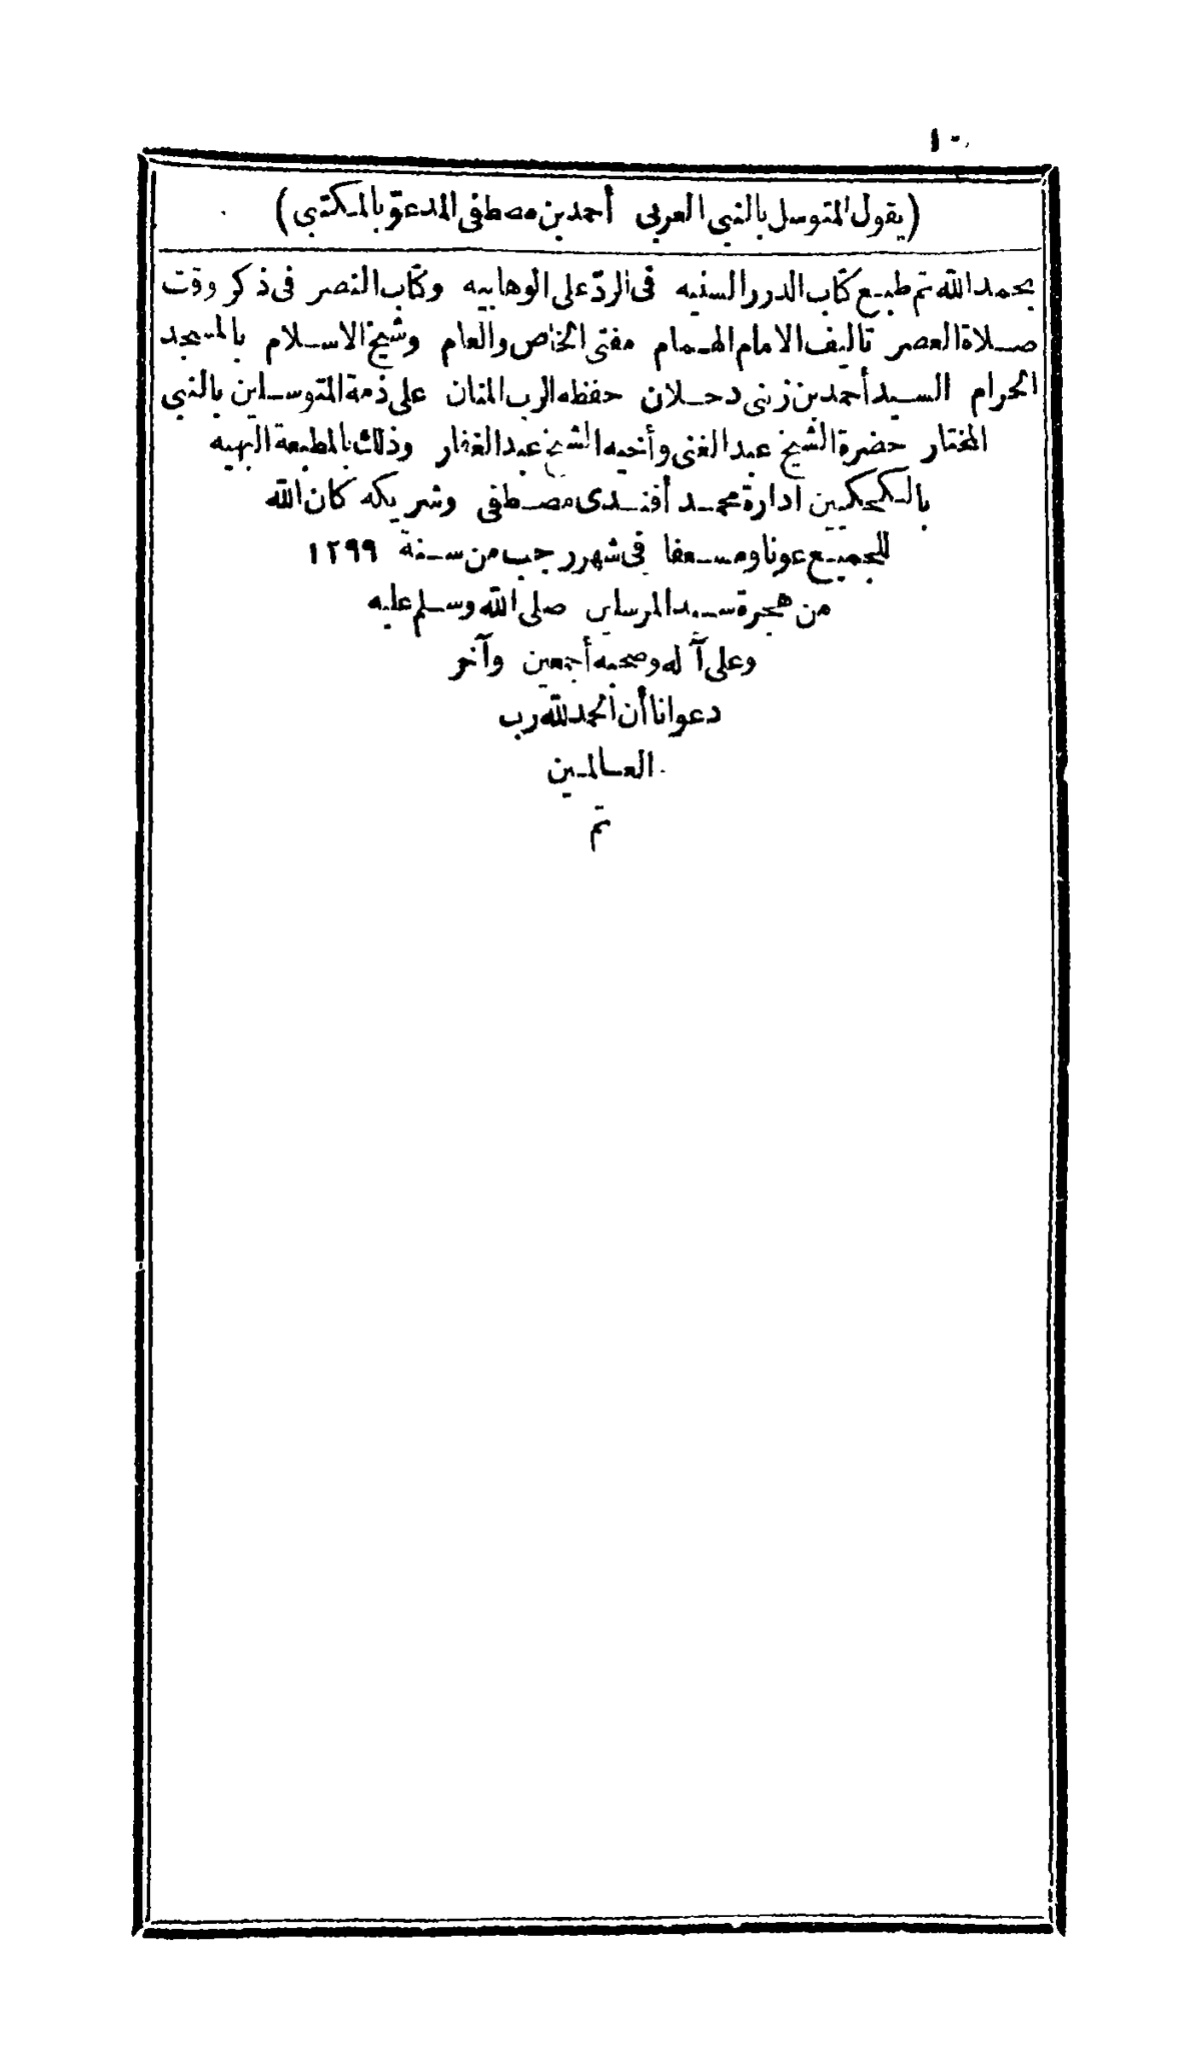 ١٠
(يقول المتوسل بالنبي العربى أحمد بن مصطفى المدعوّ بالمكتبي)
بحمد الله تم طبع كتاب الدرر السنيه فى الردّ على الوهابيه وكتاب النصر فى ذكر وقت
صلاة العصر تاليف الامام الهمام مفتى الخاص والعام وشيخ الاسلام بالمسجد
الحرام السيد أحمد بن زينى دحلان حفظه الرب المنان على ذمة المتوسلين بالنبي
المختار حضرة الشيخ عبد الغنى وأخيه الشيخ عبد الغفار وذلك بالمطبعة البهية
بالكحكيين ادارة محمد أفندى مصطفى وشريكه كان الله
للجميع عونا ومسعفا فى شهر رجب من سنة ١٢٩٩
من هجرة سيد المرسلين صلى الله وسلم عليه
وعلى آله وصحبه أجمعين وآخر
دعوانا أن الحمد لله رب
العالمين
تم